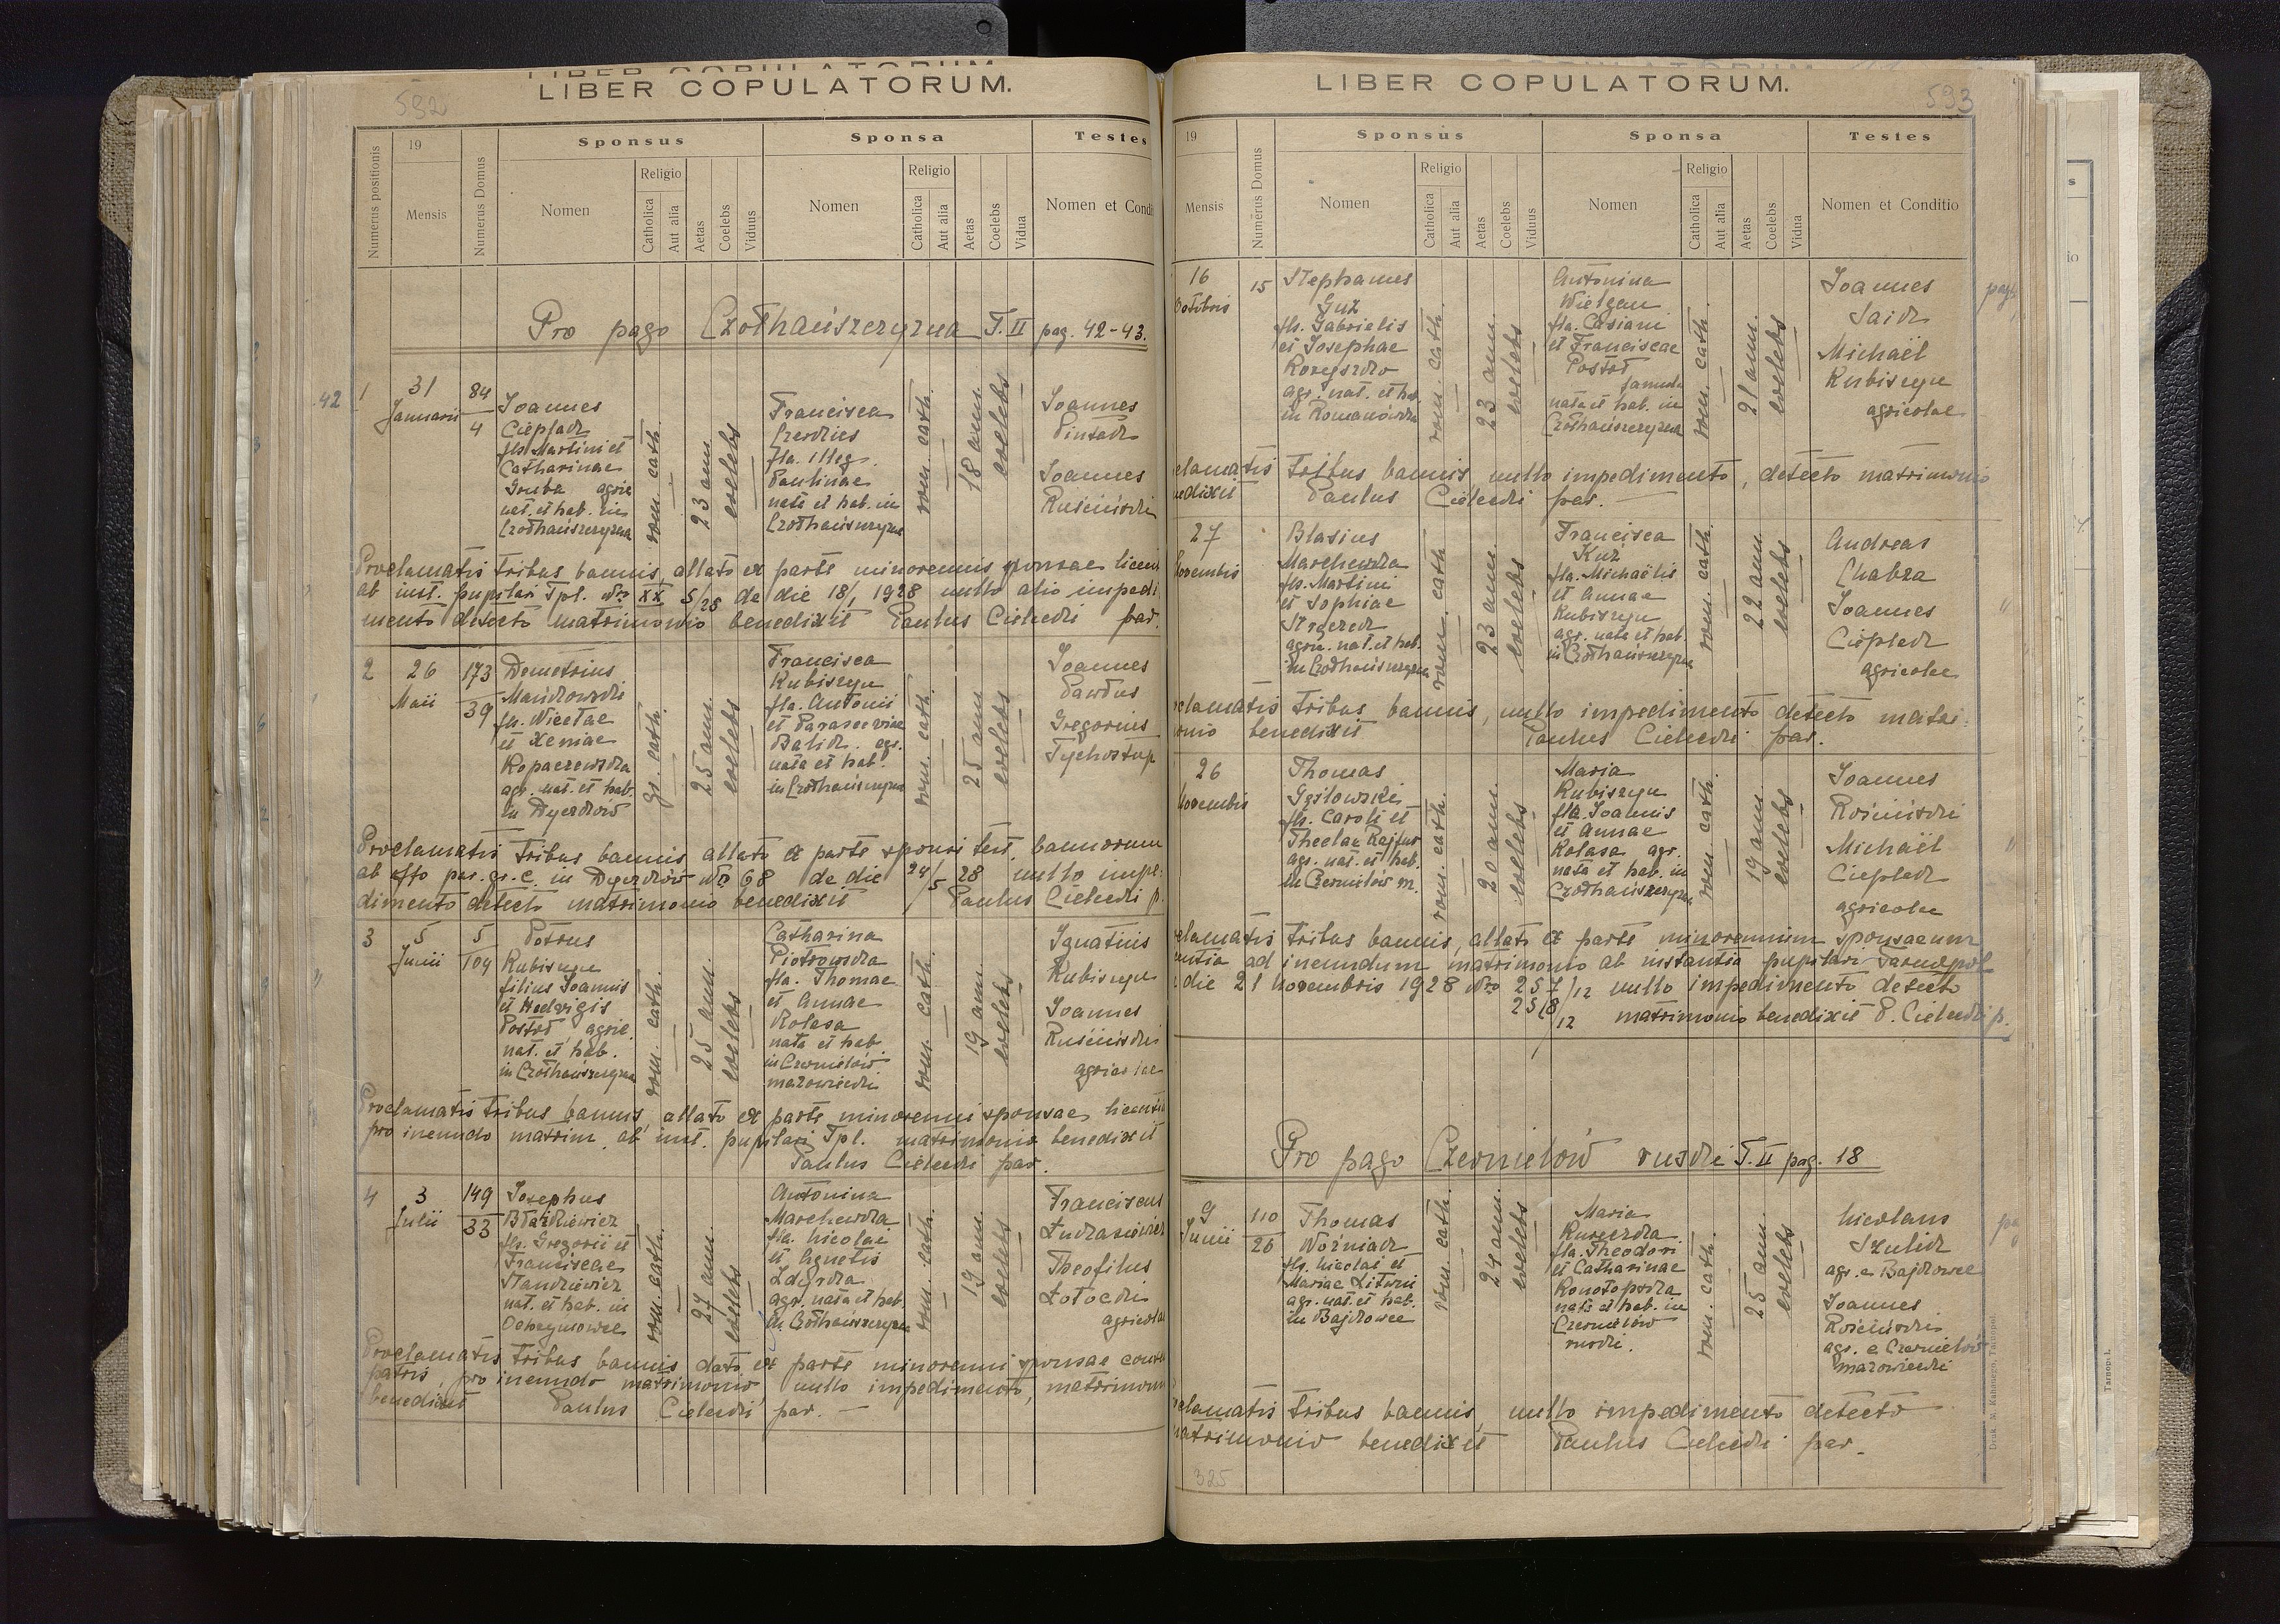 LIBER COPULATORUM.
592
Numerus positionis
19
Mensis
Numerus Domus
Sponsus
Nomen
Religio
Catholica
Aut alia
Aetas
Coelebs
Viduus
Sponsa
Nomen
Religio
Catholica
Aut alia
Aetas
Coelebs
Vidua
Testes
Nomen et Condi
Pro pago Czołhańszczyzna T. II pag. 42-43.
42
1
31
Januarii
84
4
Joannes
Ciepład
fls. Martini et
Catharinae
Gruba agric
nat. et hab. in
Czołhańszczyzna
rom. cath.
23 ann.
coelebs
Francisca
fla. illeg.
Paulinae
nata et hab. in
Czołhańszczyzna
rom. cath.
18 ann.
coelebs
Joannes
Joannes
Proclamatis tribus bannis, allato ex parte minorennis sponsae licen
ab inst. pupilari Tpl. Nro XX 5/28 de die 18/1 1928 nullo alio impedi
mento detecto matrimonio benedixit Paulus Cielecki par.
2
26
Maii
173
39
Demetrius
fls. Nicetae
et Xeniae
Kopaczewska
agr. nat. et hab.
in
gr. cath.
25 ann.
coelebs
Francisca
Kubiszyn
fla. Antonii
et Parascevae
Balik agr.
nata et hab.
in Czołhańszczyzna
rom. cath.
25 ann
coelebs
Joannes
Gregorius
Proclamatis tribus bannis, allato ex parte sponsi test. bannorum
ab offo par. gr. c. in Nro 68 de die 24/5 28 nullo impe
dimento detecto matrimonio benedixit Paulus Cielecki p.
3
5
Junii
5
104
Petrus
Kubiszyn
filius Joannis
et Hedvigis
Postół, agric.
nat. et hab.
in Czołhańszczyzna
rom. cath.
25 ann.
coelebs
Catharina
Piotrowska
fla. Thomae
et Annae
Kolasa
nata et hab
in Czernielów
mazowiecki
rom. cath.
19 ann.
coelebs
Ignatius
Kubiszyn
Joannes
agricolae
Proclamatis tribus bannis, allato ex parte minorenni sponsae licentia
pro ineundo matrim. ab inst. pupilari Tpl. matrimonio benedixit
Paulus Cielecki par.
4
3
Julii
149
33
Josephus
Błażkiewicz
fls. Gregorii et
Franciscae
Stankiewicz
nat. et hab. in
Ochrymowce
rom. cath.
27 ann.
coelebs
Antonina
Marchewka
fla. Nicolai
et Agnetis
agr. nata et hab.
in Czołhańszczyzna
rom. cath.
19 ann.
coelebs
Franciscus
Theofilus
agricolae
Proclamatis tribus bannis, dato ex parte minorenni sponsae conse
patris, pro ineundo matrimonio nullo impedimento, matrimon
benedixit Paulus Cielecki par.
LIBER COPULATORUM.
593
19
Mensis
Numerus Domus
Sponsus
Nomen
Religio
Catholica
Aut alia
Aetas
Coelebs
Viduus
Sponsa
Nomen
Religio
Catholica
Aut alia
Aetas
Coelebs
Vidua
Testes
Nomen et Conditio
16
Octobris
15
Stephanus
Guz
fls. Gabrielis
et Josephae
agr. nat. et hab.
in Romanówka
rom. cath.
23 ann.
coelebs
Antonina
Wielgan
fla. Casiani
et Franciscae
Postół
famula
nata et hab. in
Czołhańszczyzna
rom. cath.
21 ann.
coelebs
Joannes
Saik
Michaël
Kubiszyn
agricolae
clamatis tribus bannis, nullo impedimento, detecto matrimonio
nedixit Paulus Cielecki par.
27
Novembris
Blasius
Marchewka
fls. Martini
et Sophiae
agric. nat. et hab.
in Czołhańszczyzna
rom. cath.
23 ann.
coelebs
Francisca
Kuz
fla. Michaëlis
et Annae
Kubiszyn
agr. nata et hab.
in Czołhańszczyzna
rom. cath.
22 ann.
coelebs
Andreas
Chabza
Joannes
agricolae
clamatis tribus bannis, nullo impedimento detecto matri:
onio benedixit Paulus Cielecki par.
26
Novembris
Thomas
fls. Caroli et
Theclae
agr. nat. et hab.
in Czernielów m.
rom. cath.
20 ann.
coelebs
Maria
Kubiszyn
fla Joannis
et Annae
Kolasa agr.
nata et hab. in
Czołhańszczyzna
rom. cath.
19 ann.
coelebs
Joannes
Michaël
agricolae
clamatis tribus bannis, allato ex parte minorennium sponsorum
entia ad ineundum matrimonio ab instantia pupilari Tarnopol
de die 21 Novembris 1928 Nro 257/12 nullo impedimento detecto
258/12 matrimonio benedixit P. Cielecki p.
Pro pago Czernielów ruski T. II pag. 18
9
Junii
110
26
Thomas
Woźniak
fls. Nicolai et
Mariae
agr. nat. et hab.
in Bajkowce
rom. cath.
24 ann.
coelebs
Maria
fla. Theodori
et Catharinae
Konotopska
nata et hab. in
Czernielów
ruski.
rom. cath.
25 ann.
coelebs
Nicolaus
Szulik
agr. e Bajkowce
Joannes
agr. e Czernielów
mazowiecki
clamatis tribus bannis, nullo impedimento detecto
matrimonio benedixit Paulus Cielecki par.
325